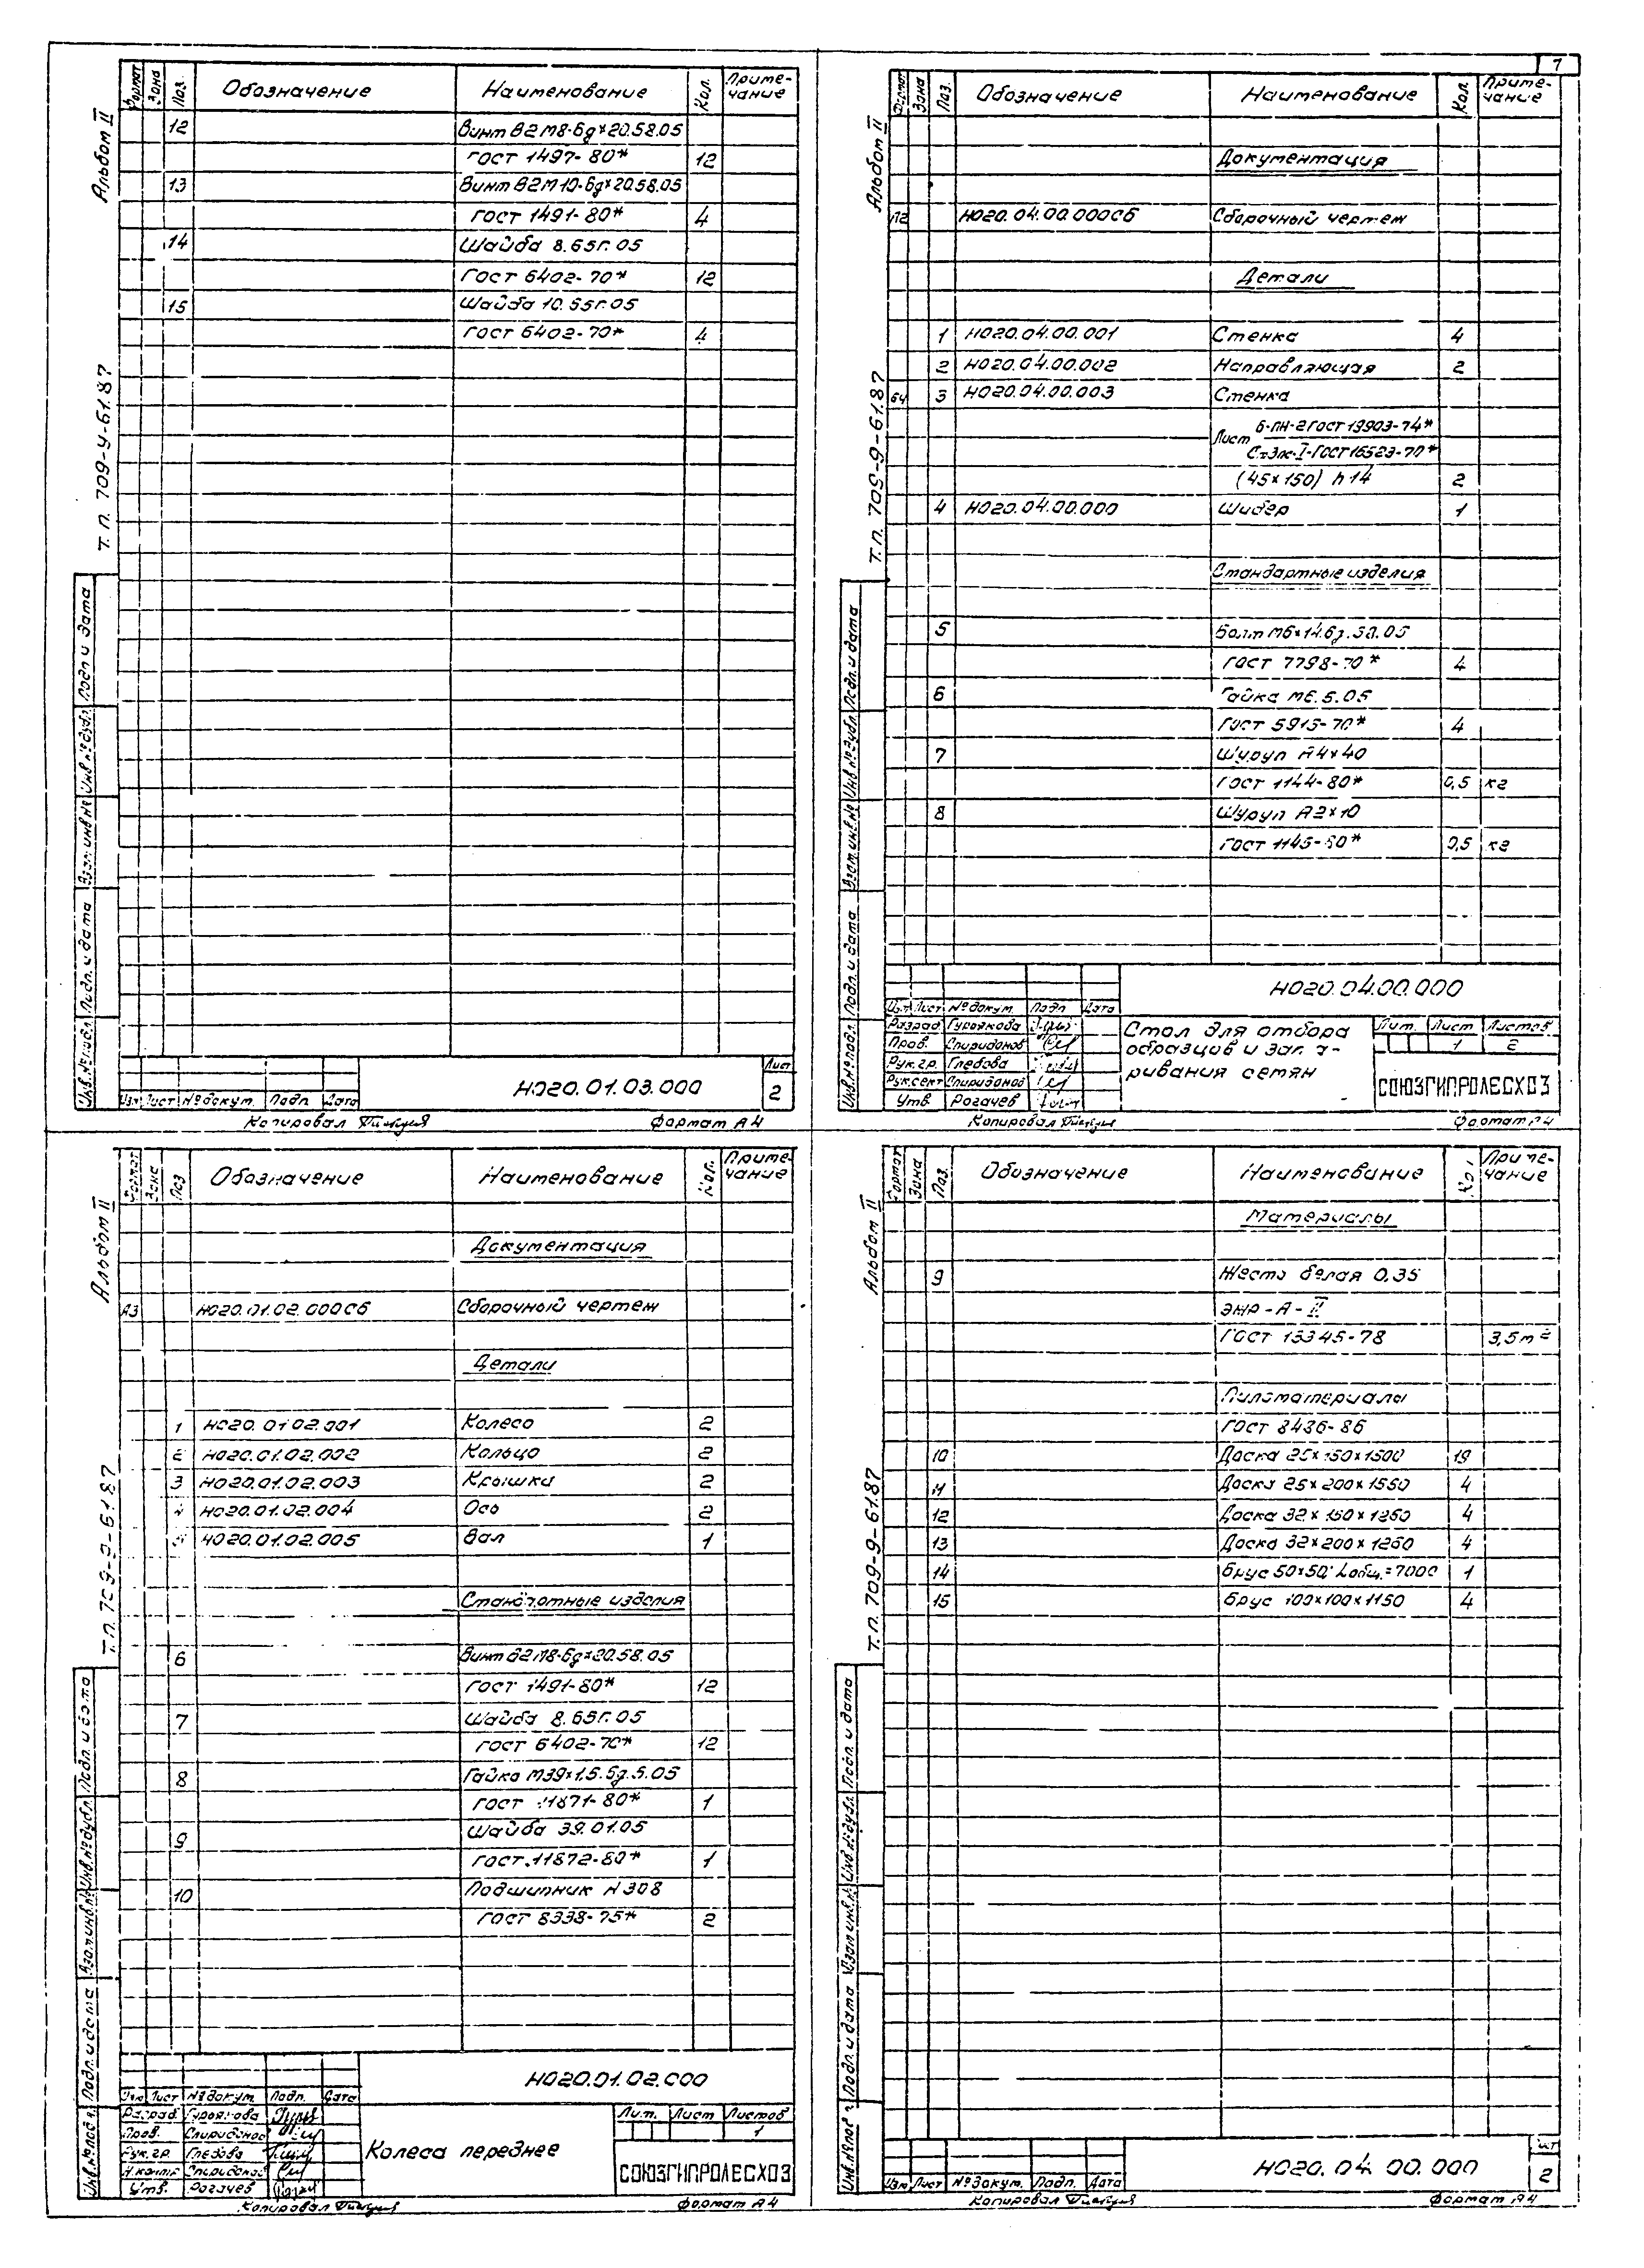 7
Альбом II
Т. п. 709-9-61.87
Формат Зона Поз. Обозначение Наименование Кол. Приме-
чание
12 Винт В2М8-6g×20.58.05
ГОСТ 1497-80* 12
13 Винт В2М10-6g×20.58.05
ГОСТ 1491-80* 4
14 Шайба 8.65Г.05
ГОСТ 6402-70* 12
15 Шайба 10.55Г.05
ГОСТ 6402-70* 4
Подп. и дата
Инв. № дубл.
Взам. инв. №
Подп. и дата
Изм Лист № докум. Подп. Дата
НО20.01.03.000
Лист
2
Копировал
Формат А4
Альбом II
Т. п. 709-9-61.87
Формат Зона Поз. Обозначение Наименование Кол. Приме-
чание
Документация
НО20.04.00.000СБ Сборочный чертеж
Детали
1 НО20.04.00.001 Стенка 4
2 НО20.04.00.002 Направляющая 2
БЧ 3 НО20.04.00.003 Стенка
Лист 6-ПН-2 ГОСТ 19903-74*
Ст3пс-I-ГОСТ 16523-70*
(45×150) h14 2
4 НО20.04.00.000 Шибер 1
Стандартные изделия
5 Болт М6×14.6g.58.05
ГОСТ 7798-70* 4
6 Гайка М6.5.05
ГОСТ 5915-70* 4
7 Шуруп А4×40
ГОСТ 1144-80* 0,5 кг
8 Шуруп А2×10
ГОСТ 1145-80* 0,5 кг
Подп. и дата
Инв. № дубл.
Взам. инв. №
Подп. и дата
Инв. № подл.
НО20.04.00.000
Изм Лист № докум. Подп. Дата
Разраб Гурьянова
Пров. Спиридонов
Рук. гр. Глебова
Рук.сект Спиридонов
Утв. Рогачев
Стол для отбора
образцов и зата-
ривания семян
Лит. Лист Листов
1 2
СОЮЗГИПРОЛЕСХОЗ
Копировал
Формат А4
Альбом II
Т. п. 709-9-61.87
Формат Зона Поз. Обозначение Наименование Кол. Приме-
чание
Документация
А3 НО20.01.02.000СБ Сборочный чертеж
Детали
1 НО20.01.02.001 Колесо 2
2 НО20.01.02.002 Кольцо 2
3 НО20.01.02.003 Крышка 2
4 НО20.01.02.004 Ось 2
5 НО20.01.02.005 Вал 1
Стандартные изделия
6 Винт В2М8-6g×20.58.05
ГОСТ 1491-80* 12
7 Шайба 8.65Г.05
ГОСТ 6402-70* 12
8 Гайка М39×1.5.5g.5.05
ГОСТ 11871-80* 1
9 Шайба 39.01.05
ГОСТ 11872-80* 1
10 Подшипник N 308
ГОСТ 8338-75* 2
Подп. и дата
Инв. № дубл.
Взам. инв. №
Подп. и дата
Инв. № подл.
НО20.01.02.000
Изм Лист № докум. Подп. Дата
Разраб Гурьянова
Пров. Спиридонов
Рук. гр. Глебова
Н.контр Спиридонов
Утв. Рогачев
Колеса переднее
Лит. Лист Листов
1
СОЮЗГИПРОЛЕСХОЗ
Копировал
Формат А4
Альбом II
Т. п. 709-9-61.87
Формат Зона Поз. Обозначение Наименование Кол. Приме-
чание
Материалы
9 Жесть белая 0,35
ЭЖР-А-II
ГОСТ 13345-78 3,5 м²
Пиломатериалы
ГОСТ 8486-86
10 Доска 25×150×1500 19
11 Доска 25×200×1550 4
12 Доска 32×150×1250 4
13 Доска 32×200×1250 4
14 Брус 50×50; Lобщ.=7000 1
15 Брус 100×100×1150 4
Подп. и дата
Инв. № дубл.
Взам. инв. №
Подп. и дата
Инв. № подл.
Изм Лист № докум. Подп. Дата
НО20.04.00.000
Лист
2
Копировал
Формат А4